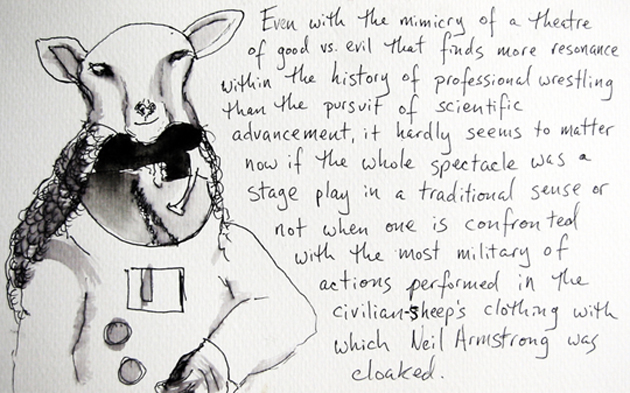 Even with the mimicry of a theatre
of good vs. evil that finds more resonance
within the history of professional wrestling
than the pursuit of scientific
advancement, it hardly seems to matter
now if the whole spectacle was a
stage play in a traditional sense or
not when one is confronted
with the most military of
actions performed in the
civilian-sheep's clothing with
which Neil Armstrong was
cloaked.